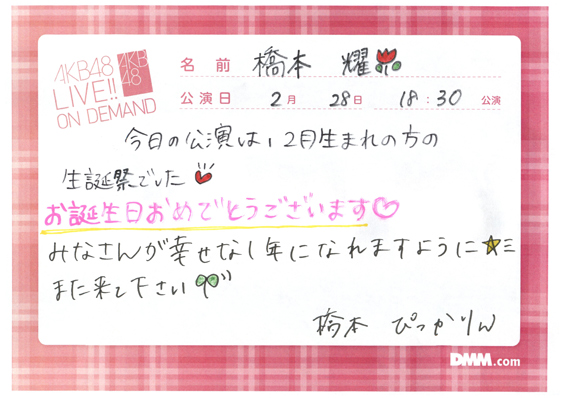 AKB48
LIVE!!
ON DEMAND
AKB
48
名前 橋本 耀
公演日 2月 28日 18:30 公演
今日の公演は、2月生まれの方の
生誕祭でした
お誕生日おめでとうございます♡
みなさんが幸せな1年になれますように☆
また来て下さい
橋本 ぴっかりん
DMM.com